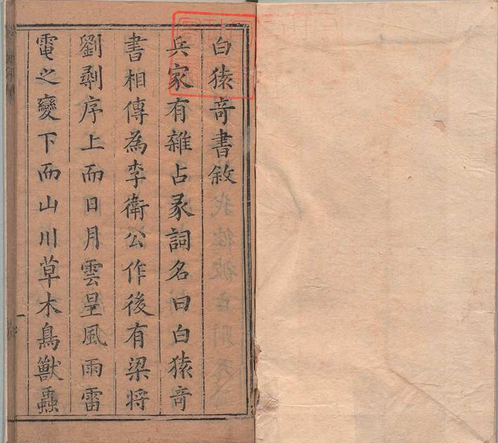 白猿奇書敘
兵家有雜占彖詞名曰白猿奇
書相傳為李衛公作後有梁將
劉剰序上而日月雲星風雨雷
電之變下而山川草木鳥獸蟲